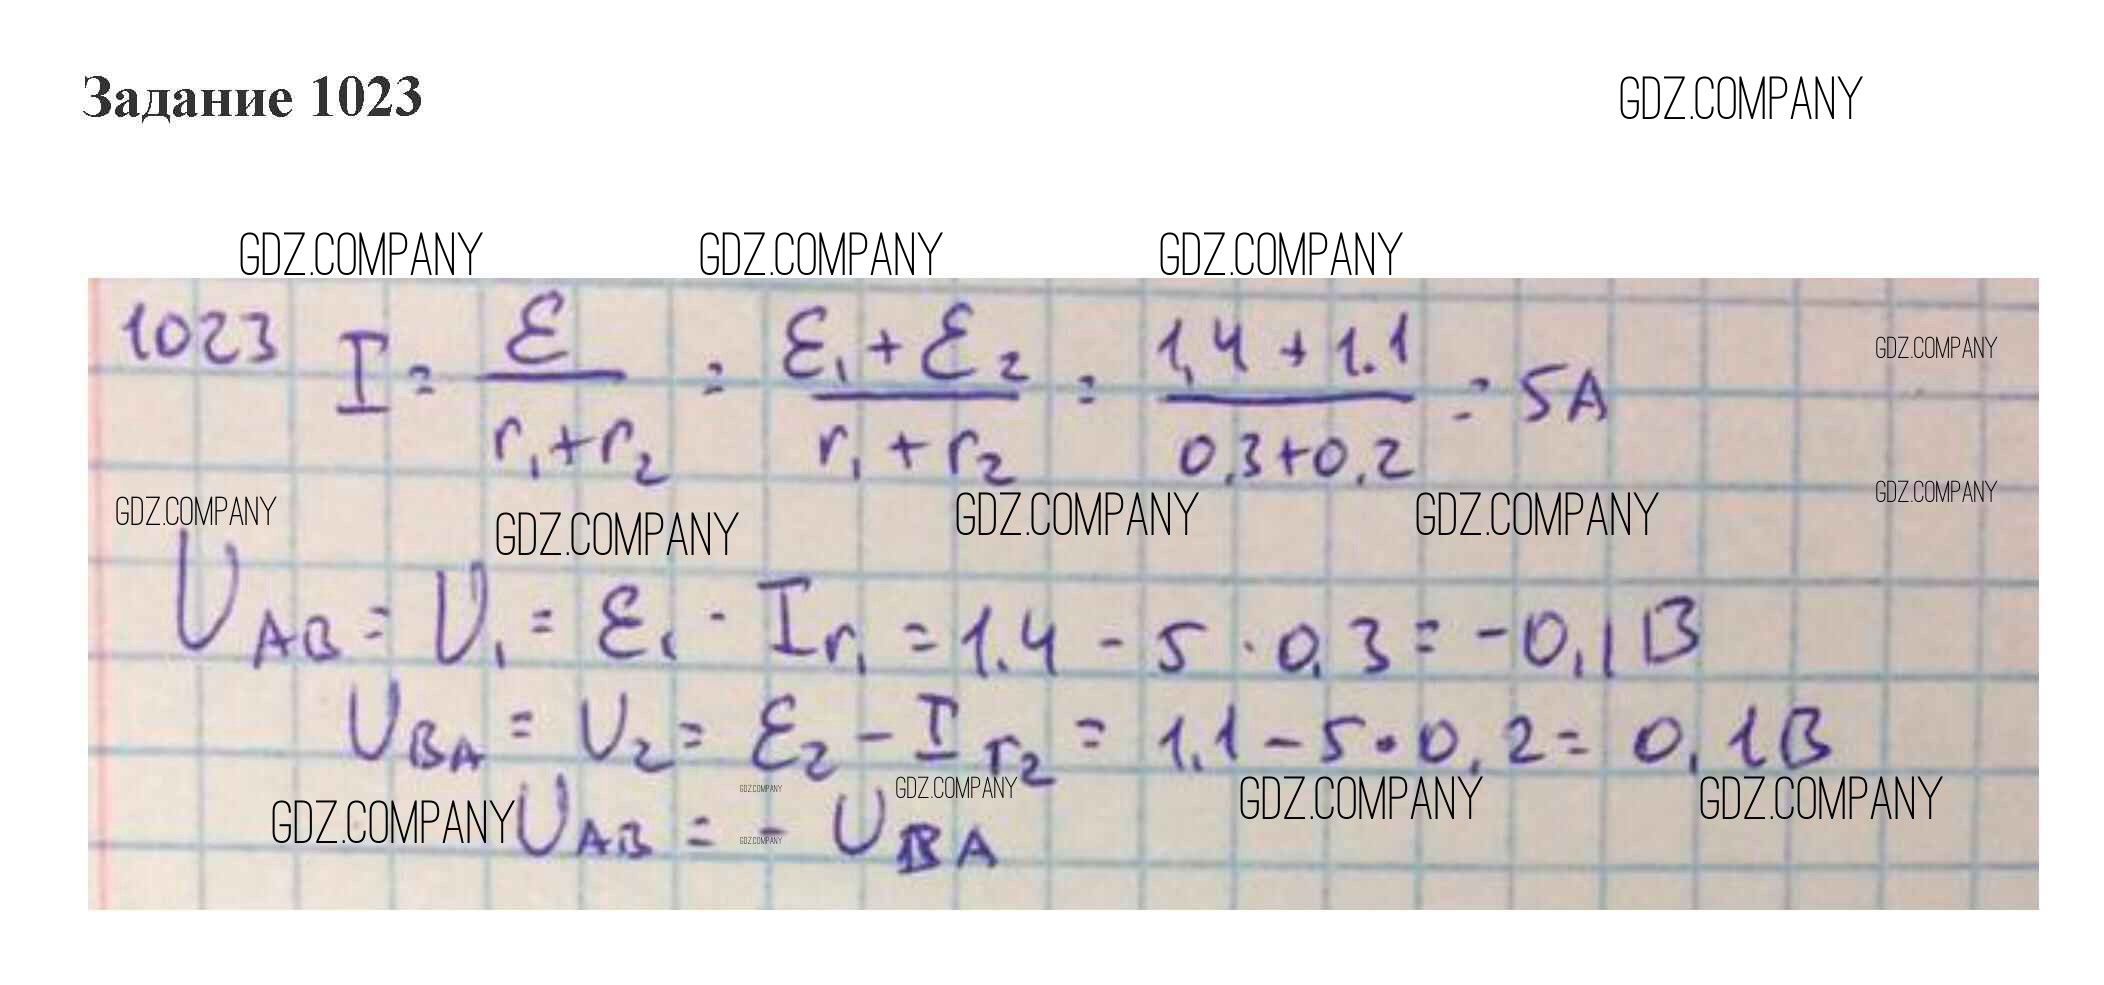 Задание 1023
GDZ.COMPANY
GDZ.COMPANY GDZ.COMPANY GDZ.COMPANY
1023 I = ℰ / (r₁+r₂) = (ℰ₁+ℰ₂) / (r₁+r₂) = (1,4+1.1) / (0,3+0,2) = 5A
GDZ.COMPANY
GDZ.COMPANY GDZ.COMPANY GDZ.COMPANY GDZ.COMPANY GDZ.COMPANY
U_AB = U₁ = ℰ₁ - Ir₁ = 1.4 - 5 · 0,3 = -0,1В
U_BA = U₂ = ℰ₂ - Ir₂ = 1,1 - 5·0,2 = 0,1В
GDZ.COMPANY GDZ.COMPANY GDZ.COMPANY GDZ.COMPANY GDZ.COMPANY
U_AB = - U_BA
GDZ.COMPANY